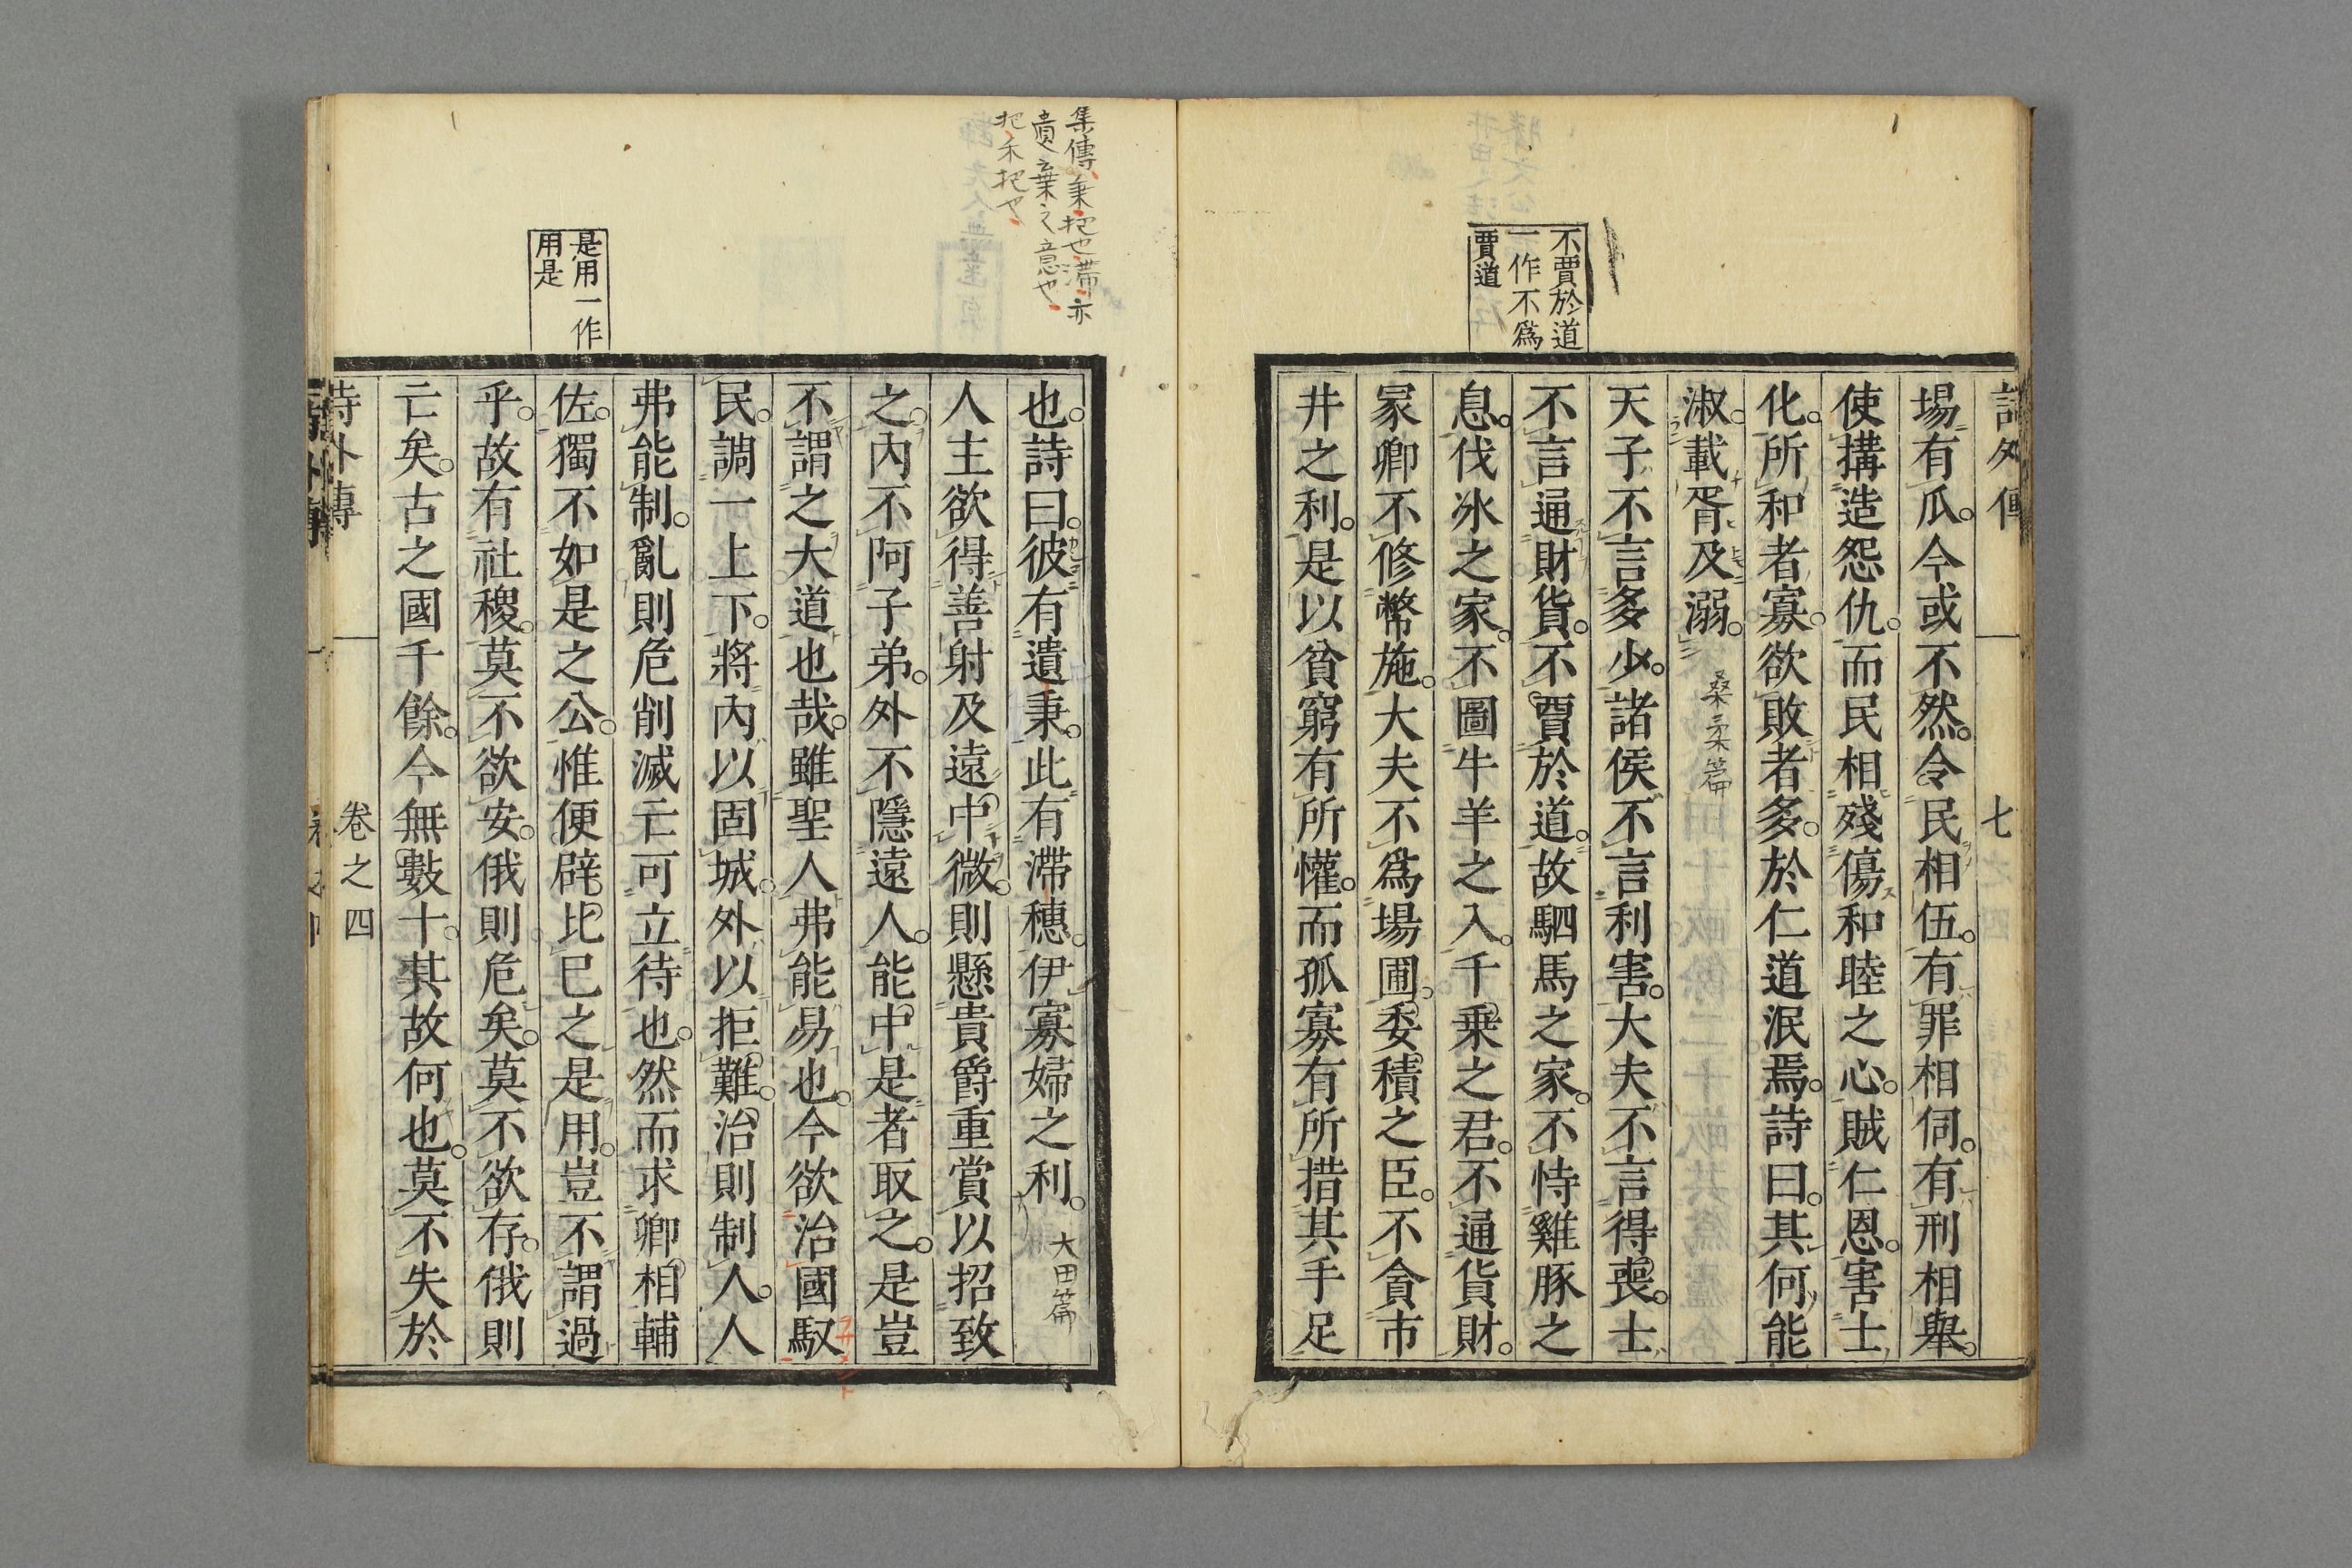 詩外傳
七
不賈於道
一作不爲
賈道
場有瓜。今或不然。令民相伍。有罪相伺。有刑相舉。
使搆造怨仇。而民相殘傷和睦之心。賊仁恩。害士
化。所和者寡。欲敗者多。於仁道泯焉。詩曰。其何能
淑。載胥及溺。桑柔篇
天子不言多少。諸侯不言利害。大夫不言得喪。士
不言通財貨。不賈於道。故駟馬之家。不恃雞豚之
息。伐冰之家。不圖牛羊之入。千乗之君。不通貨財。
冡卿不修幣施。大夫不爲場圃。委積之臣。不貪市
井之利。是以貧窮有所懽。而孤寡有所措其手足
集傳秉把也滯亦
遺棄之意也
把禾把也
也。詩曰。彼有遺秉。此有滯穗。伊寡婦之利。大田篇
人主欲得善射及遠中微。則懸貴爵重賞以招致
之。內不阿子弟。外不隱遠人。能中是者取之。是豈
不謂之大道也哉。雖聖人弗能易也。今欲治國馭
民。調一上下。將內以固城。外以拒難。治則制人。人
弗能制。亂則危削滅亡可立待也。然而求卿相輔
是用一作
用是
佐。獨不如是之公。惟便辟比巳之是用。豈不謂過
乎。故有社稷。莫不欲安。俄則危矣。莫不欲存。俄則
亡矣。古之國千餘。今無數十。其故何也。莫不失於
詩外傳
卷之四